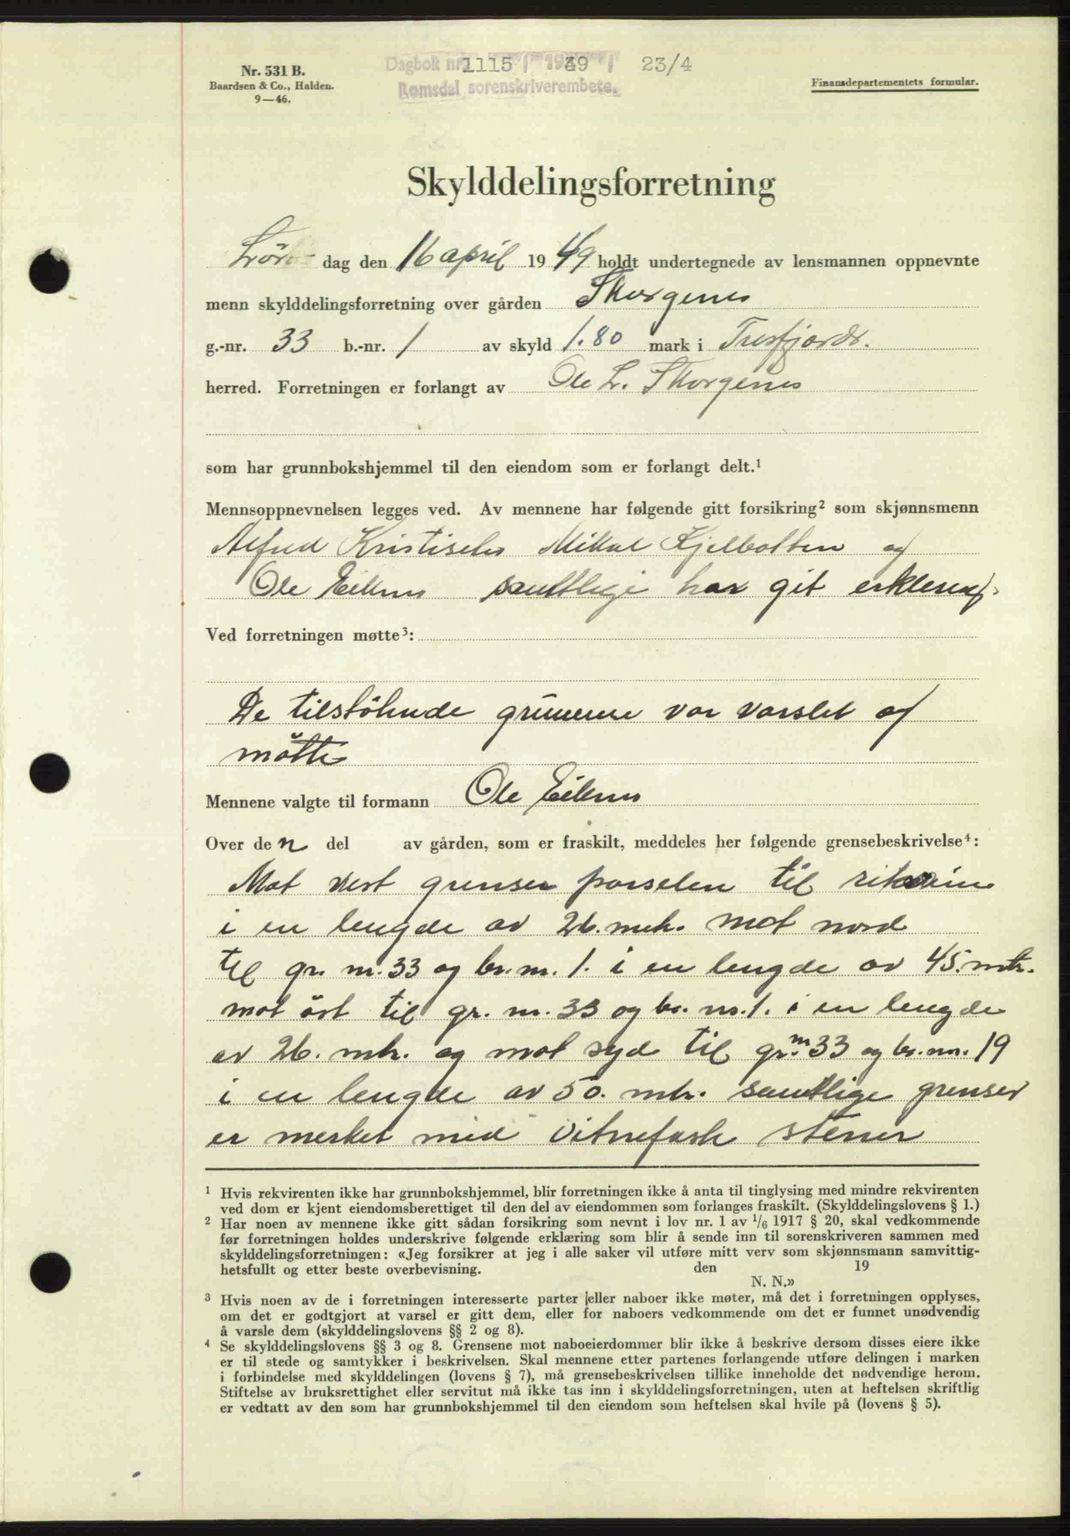 Nr. 531 B.
Baardsen & Co., Halden.
9—46.
Dagbok nr. 1115 / 1949 / 23/4
Romsdal sorenskriverembete.
Finansdepartementets formular.
Skylddelingsforretning
Lör dag den 16 april 19 49 holdt undertegnede av lensmannen oppnevnte
menn skylddelingsforretning over gården Skorgenes
g.-nr. 33 b.-nr. 1 av skyld 1.80 mark i Tresfjord.
herred. Forretningen er forlangt av Ole L. Skorgenes
som har grunnbokshjemmel til den eiendom som er forlangt delt.¹
Mennsoppnevnelsen legges ved. Av mennene har følgende gitt forsikring² som skjønnsmenn
Alfred Mikal Kjelbotten og
Ole samtlige har git
Ved forretningen møtte³:
De tilstöhnde var varslet og
mötte
Mennene valgte til formann Ole
Over den del av gården, som er fraskilt, meddeles her følgende grensebeskrivelse⁴:
Mot vest grenser parselen til
i en lengde av 26. mtr. mot nord
til gr. nr. 33 og br. nr. 1. i en lengde av 45. mtr.
mot öst til gr. nr. 33 og br. nr. 1. i en lengde
av 26. mtr. og mot syd til gr. nr 33 og br. nr. 19
i en lengde av 50. mtr. samtlige grenser
er merket med vitnefaste stener
¹ Hvis rekvirenten ikke har grunnbokshjemmel, blir forretningen ikke å anta til tinglysing med mindre rekvirenten
ved dom er kjent eiendomsberettiget til den del av eiendommen som forlanges fraskilt. (Skylddelingslovens § 1.)
² Har noen av mennene ikke gitt sådan forsikring som nevnt i lov nr. 1 av ¹/₆ 1917 § 20, skal vedkommende
før forretningen holdes underskrive følgende erklæring som blir å sende inn til sorenskriveren sammen med
skylddelingsforretningen: «Jeg forsikrer at jeg i alle saker vil utføre mitt verv som skjønnsmann samvittig-
hetsfullt og etter beste overbevisning. den 19
N. N.»
³ Hvis noen av de i forretningen interesserte parter eller naboer ikke møter, må det i forretningen opplyses,
om det er godtgjort at varsel er gitt dem, eller for naboers vedkommende om det er funnet unødvendig
å varsle dem (skylddelingslovens §§ 2 og 8).
⁴ Se skylddelingslovens §§ 3 og 8. Grensene mot naboeierdommer blir ikke å beskrive dersom disses eiere ikke
er til stede og samtykker i beskrivelsen. Skal mennene etter partenes forlangende utføre delingen i marken
i forbindelse med skylddelingen (lovens § 7), må grensebeskrivelsen tillike inneholde det nødvendige herom.
Stiftelse av bruksrettighet eller servitut må ikke tas inn i skylddelingsforretningen, uten at heftelsen skriftlig
er vedtatt av den som har grunnbokshjemmel til den eiendom som heftelsen skal hvile på (lovens § 5).